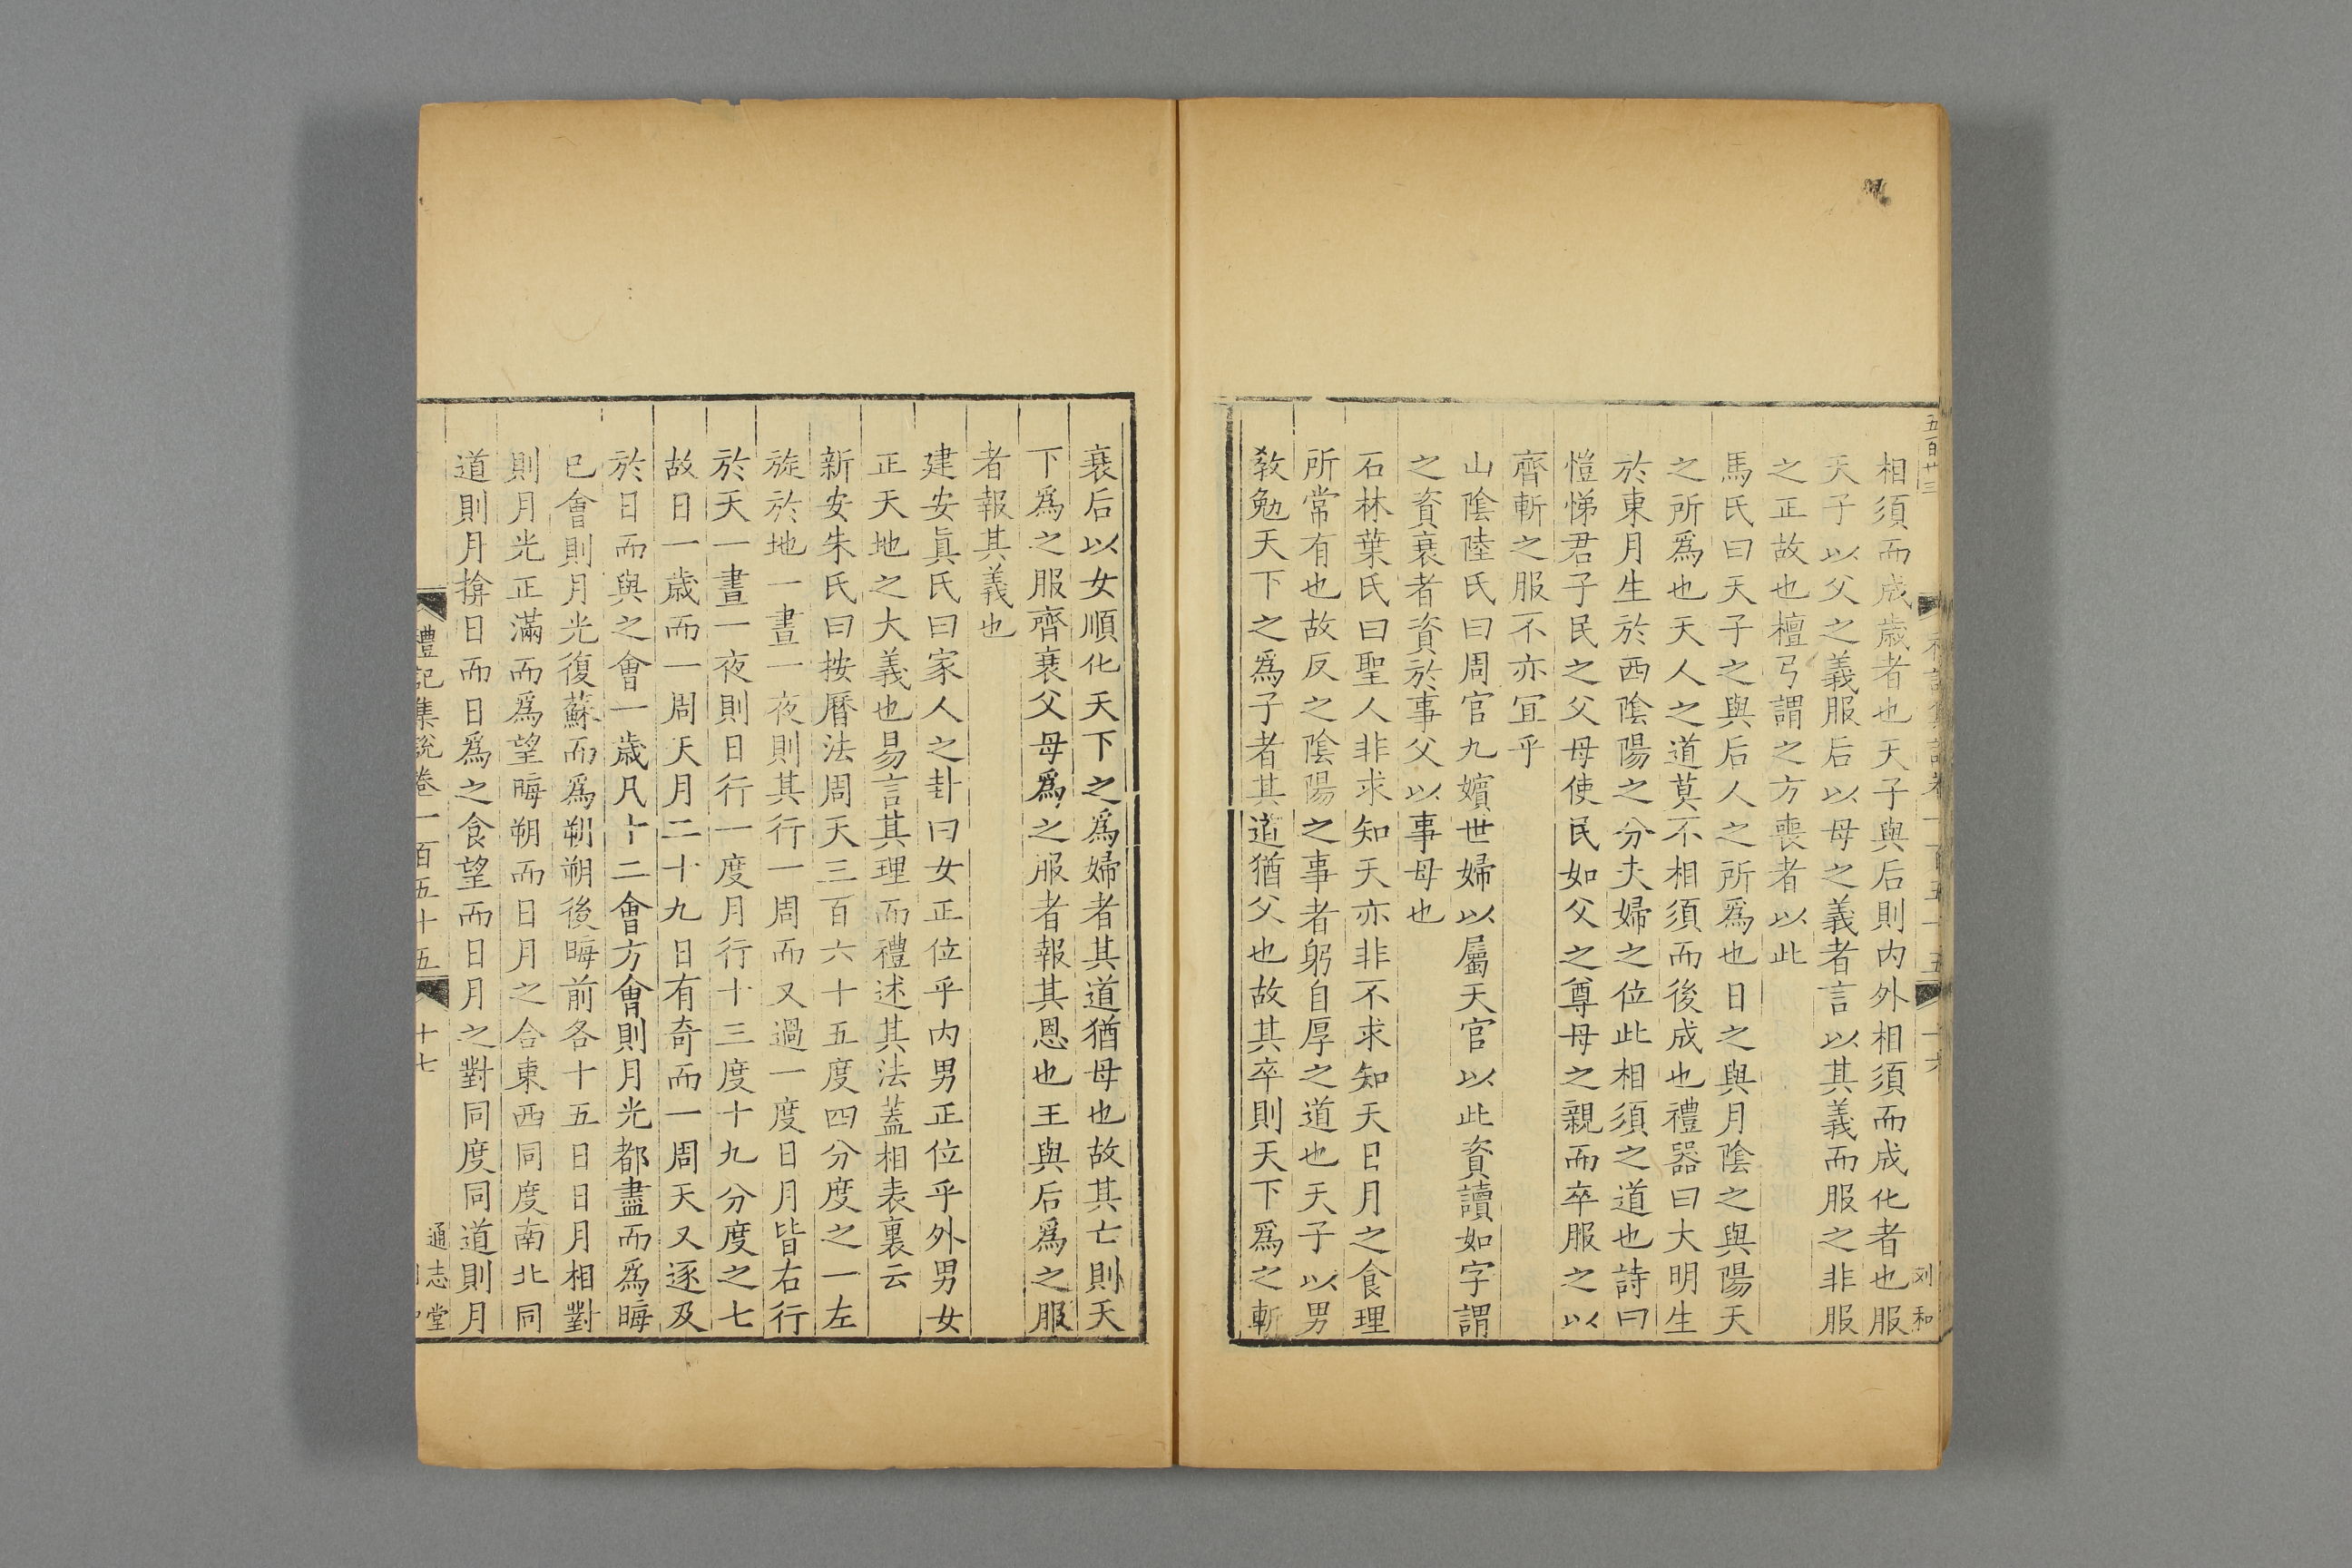 五百廿三
刘和
相須而成歲者也天子與后則内外相須而成化者也服
天子以父之義服后以母之義者言以其義而服之非服
之正故也檀弓謂之方喪者以此
馬氏曰天子之與后人之所爲也日之與月陰之與陽天
之所爲也天人之道莫不相須而後成也禮器曰大明生
於東月生於西陰陽之分夫婦之位此相須之道也詩曰
愷悌君子民之父母使民如父之尊母之親而卒服之以
齊斬之服不亦宜乎
山陰陸氏曰周官九嬪世婦以屬天官以此資讀如字謂
之資衰者資於事父以事母也
石林葉氏曰聖人非求知天亦非不求知天日月之食理
所常有也故反之陰陽之事者躬自厚之道也天子以男
敎勉天下之爲子者其道猶父也故其卒則天下爲之斬
衰后以女順化天下之爲婦者其道猶母也故其亡則天
下爲之服齊衰父母爲之服者報其恩也王與后爲之服
者報其義也
建安眞氏曰家人之卦曰女正位乎内男正位乎外男女
正天地之大義也易言其理而禮述其法蓋相表裏云
新安朱氏曰按曆法周天三百六十五度四分度之一左
旋於地一晝一夜則其行一周而又過一度日月皆右行
於天一晝一夜則日行一度月行十三度十九分度之七
故日一歲而一周天月二十九日有奇而一周天又逐及
於日而與之會一歲凡十二會方會則月光都盡而爲晦
已會則月光復蘇而爲朔朔後晦前各十五日日月相對
則月光正滿而爲望晦朔而日月之合東西同度南北同
道則月揜日而日爲之食望而日月之對同度同道則月
禮記集說卷一百五十五
十七
通志堂